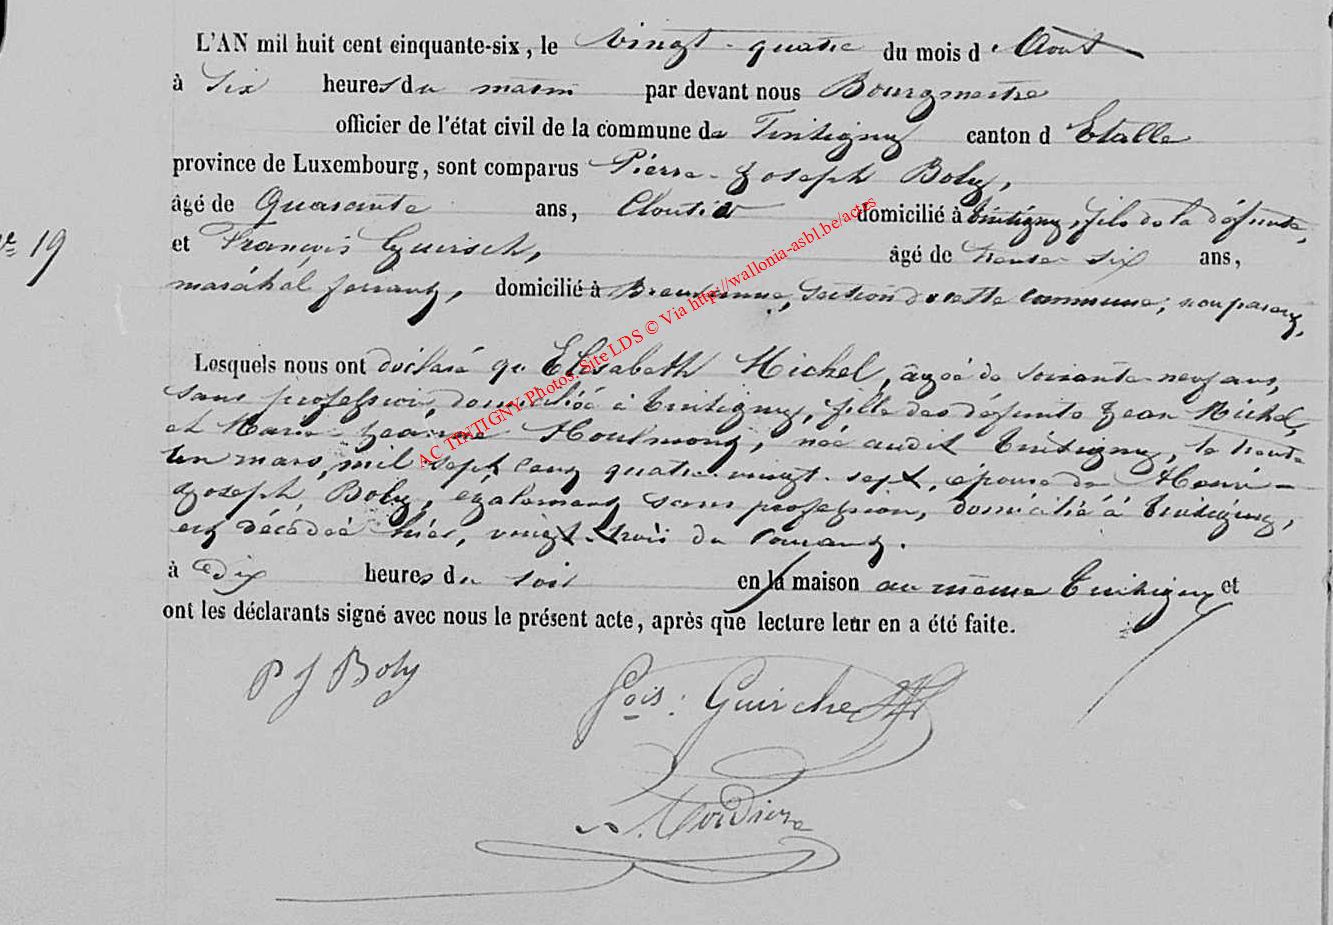 L'AN mil huit cent cinquante-six, le vingt-quatre du mois d'Aout
à Six heures du matin par devant nous Bourgmestre
officier de l'état civil de la commune de Tintigny canton d Etalle
province de Luxembourg, sont comparus Pierre-Joseph Boly,
âgé de Quarante ans, Cloutier domicilié à Tintigny, fils de la défunte,
N° 19
et François Guirsch, âgé de trente six ans,
maréchal ferrant, domicilié à section de cette commune; non parent,
Lesquels nous ont déclaré qu'Elisabeth Michel, âgée de soixante-neuf ans,
sans profession, domiciliée à Tintigny, fille des défunts Jean Michel,
et Marie-Jeanne née audit Tintigny, le trente
un mars, mil sept cent quatre-vingt-sept, épouse de Henri-
Joseph Boly, également sans profession, domicilié à Tintigny,
est décédée hier, vingt-trois du courant.
à dix heures du soir en la maison au même Tintigny et
ont les déclarants signé avec nous le présent acte, après que lecture leur en a été faite.
P J Boly
Fçois: Guirche
AC TINTIGNY Photos: Site LDS © Via http://wallonia-asbl.be/actes